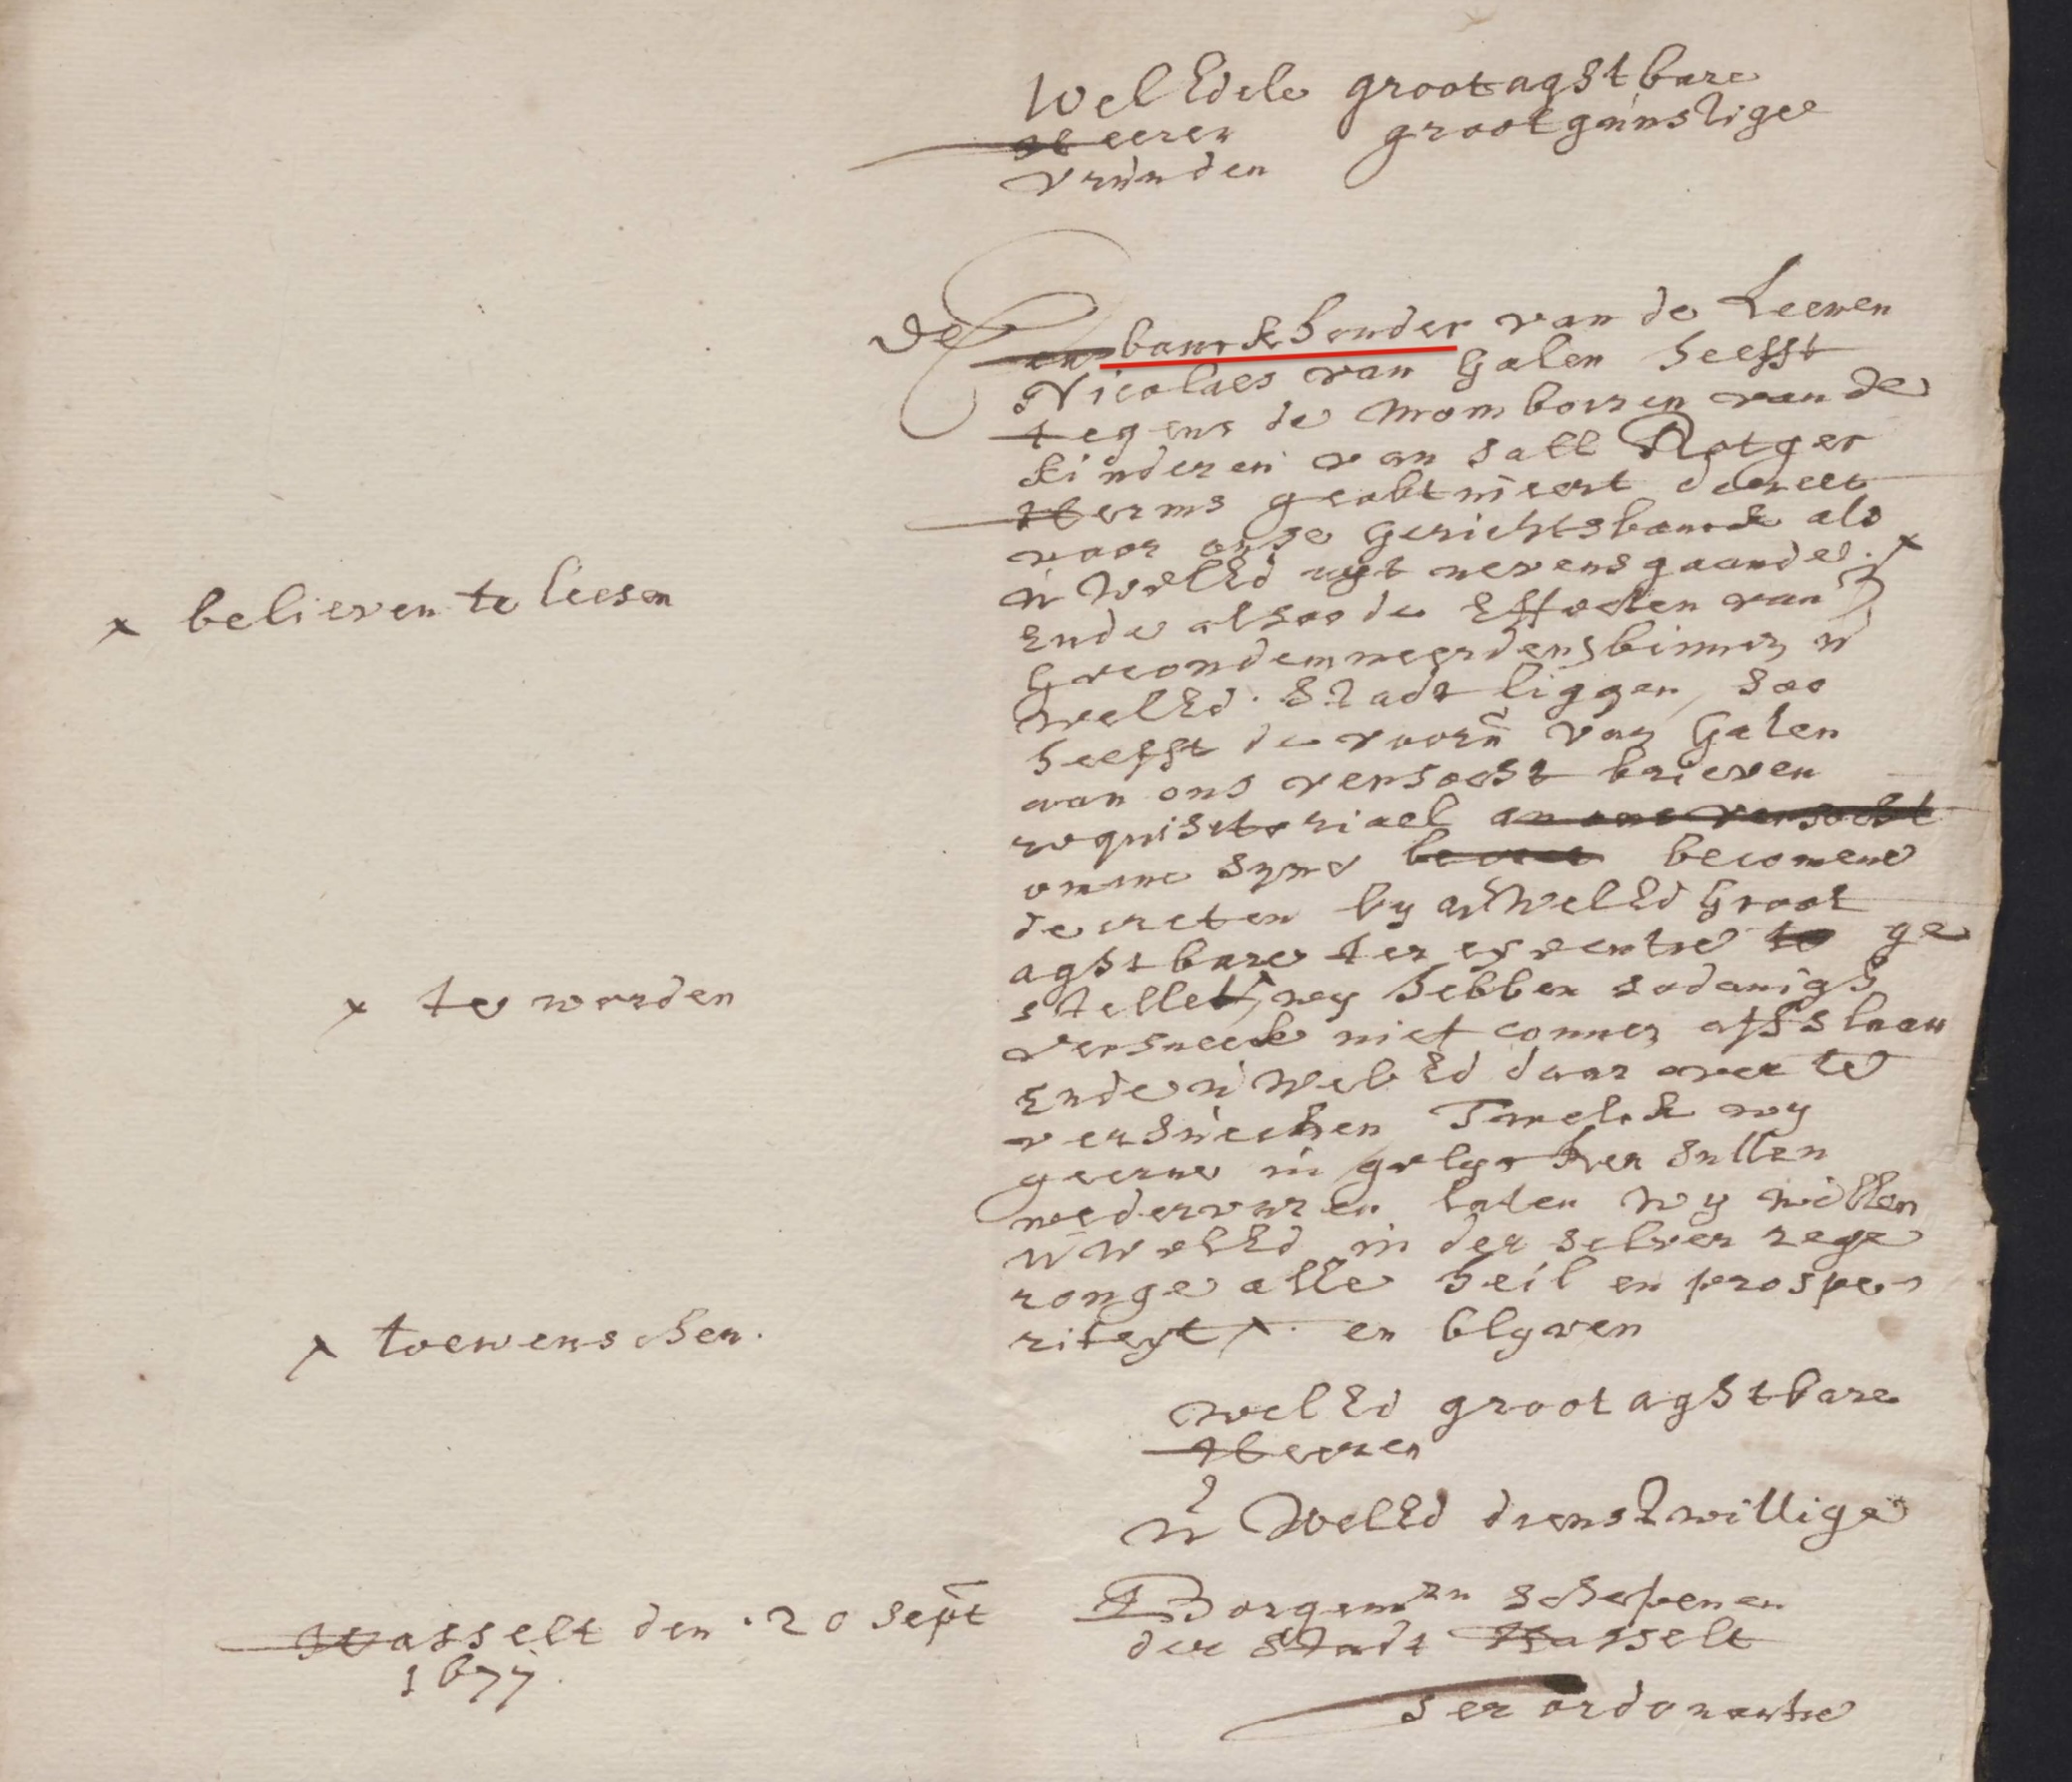 WelEdele grootagtbare
Heeren grootgunstige
vrunden
De banckhouder van de Leewen
Nicolaes van Galen heefft
tegens de Momboiren van de
kinderen van sall Rotger
Herms geobtineert decreet
voor onse gerichtsbanck als
u WelEd uyt nevensgaande ×
× believen te leesen
Ende alsoo de Effecten van
Gecondemneerdens binnen u
WelEd. Stadt liggen, soo
heefft de voorn van Galen
aan ons versocht brieven
requisitoriael an ons versocht
omme syne becomene
decreten by u WelEd Groot
agtbare ter executie te ge
stellet × wy hebben sodanigh
× te worden
versoeck niet connen affslaan
Ende u WelEd daar over te
versuecken Twelck wy
geerne in gelycken sullen
wedervaren laten wy willen
u WelEd in der selver rege
ronge alle heil en prospe-
riteyt × en blyven
× toewenschen.
WelEd grootagtbare
Heeren
U WelEd dienstwillige
Borgemrn Schepenen
der Stadt Hasselt
Hasselt den 20 Sept
1677.
Ter ordonantie